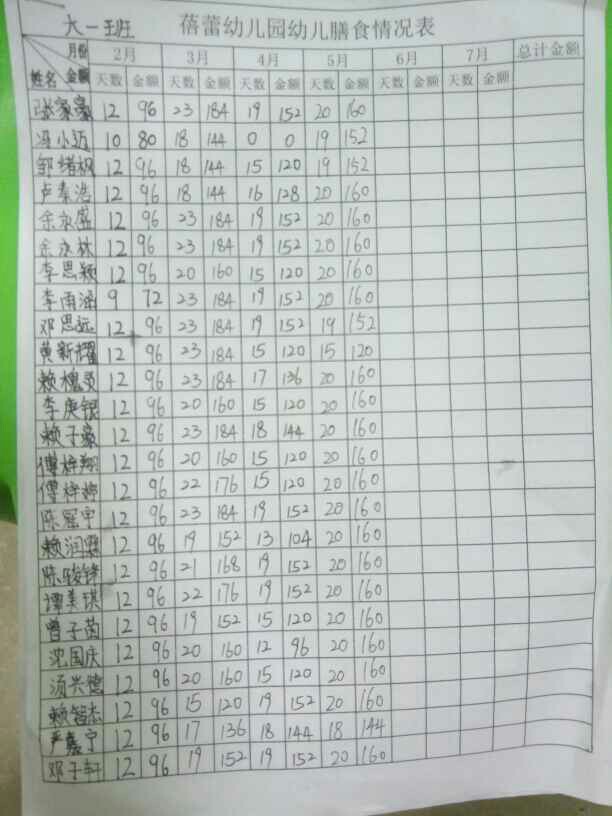 大一班 蓓蕾幼儿园幼儿膳食情况表
月份 2月 3月 4月 5月 6月 7月 总计金额
姓名 金额 天数 金额 天数 金额 天数 金额 天数 金额 天数 金额 天数 金额
张家豪 12 96 23 184 19 152 20 160
冯小迈 10 80 18 144 0 0 19 152
邹绪枫 12 96 18 144 15 120 19 152
卢秦浩 12 96 18 144 16 128 20 160
余永盛 12 96 23 184 19 152 20 160
余永林 12 96 23 184 19 152 20 160
李思颖 12 96 20 160 15 120 20 160
李雨涵 9 72 23 184 19 152 20 160
邓思远 12 96 23 184 19 152 19 152
黄新耀 12 96 23 184 15 120 15 120
赖槐 12 96 23 184 17 136 20 160
李庚银 12 96 20 160 15 120 20 160
赖子豪 12 96 23 184 18 144 20 160
傅梓翔 12 96 20 160 15 120 20 160
傅梓婷 12 96 22 176 15 120 20 160
陈冠宇 12 96 23 184 19 152 20 160
赖润 12 96 19 152 13 104 20 160
陈骏锋 12 96 21 168 19 152 20 160
谭美琪 12 96 22 176 19 152 20 160
曾子茵 12 96 19 152 15 120 20 160
沈国庆 12 96 20 160 12 96 20 160
兴德 12 96 20 160 15 120 20 160
赖智杰 12 96 15 120 19 152 20 160
严嘉宁 12 96 17 136 18 144 18 144
邓子轩 12 96 19 152 19 152 20 160